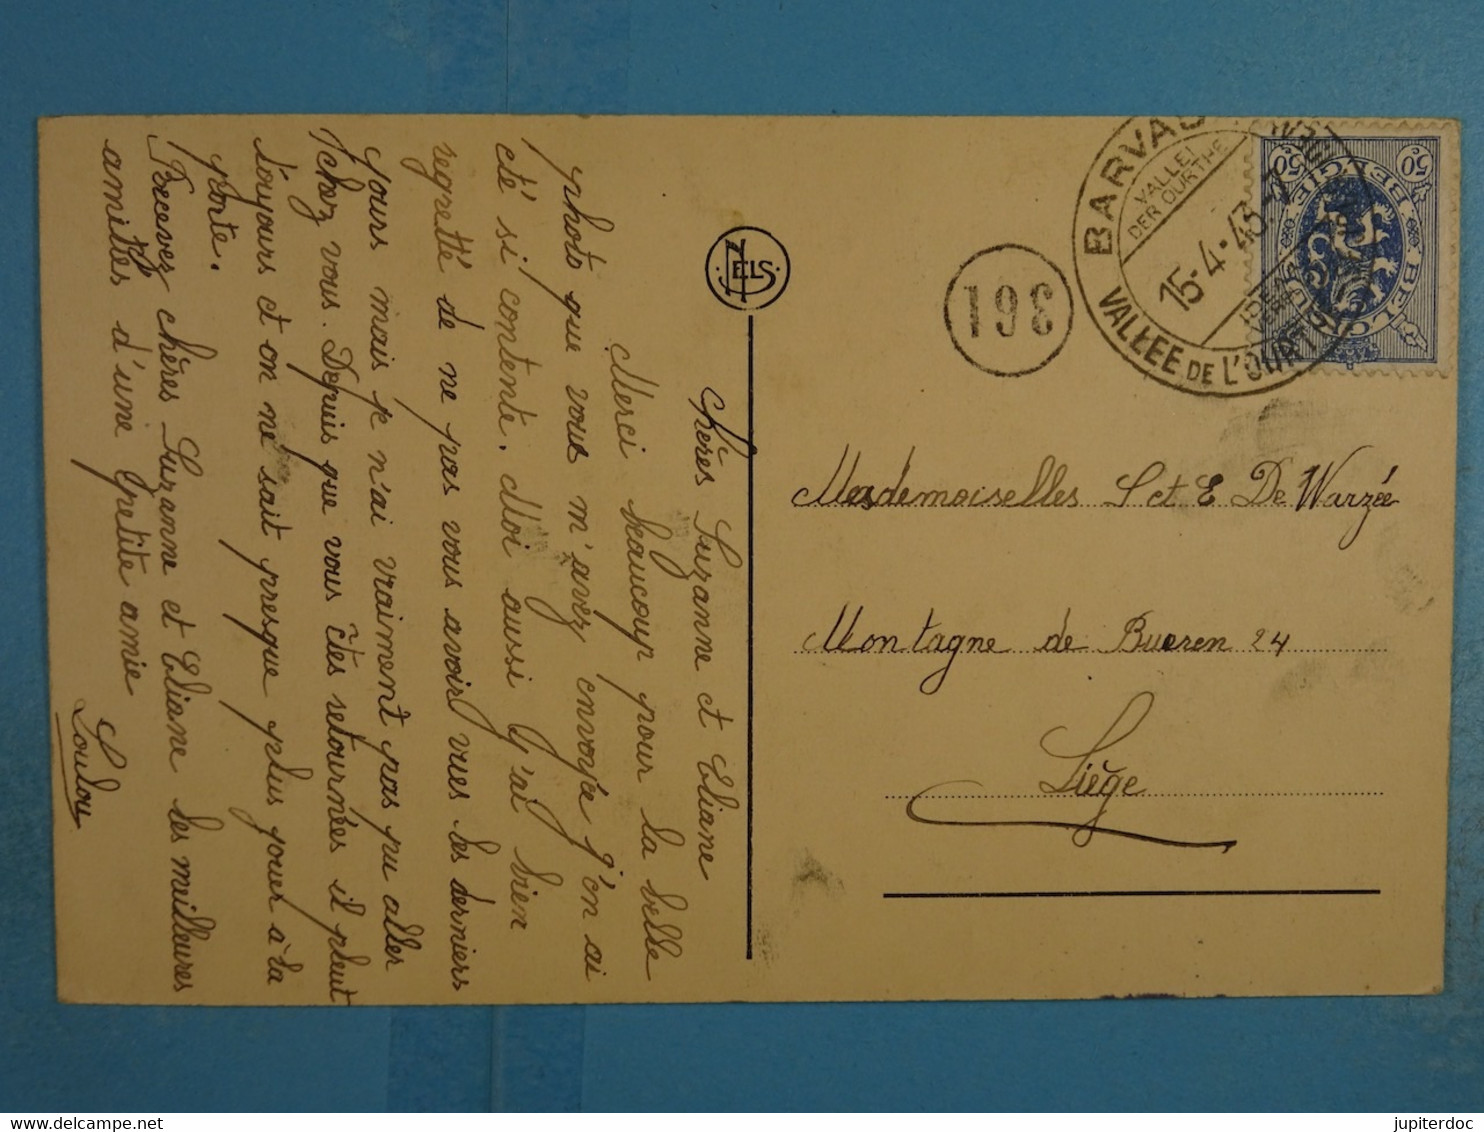 Chères Suzanne et Eliane
Merci beaucoup pour la belle
photo que vous m'avez envoyée j'en ai
été si contente. Moi aussi j'ai bien
regretté de ne pas vous avoir vues les derniers
jours mais je n'ai vraiment pas pu aller
chez vous. Depuis que vous êtes retournées il pleut
toujours et on ne sait presque plus jouer à la
porte.
Recevez chères Suzanne et Eliane les meilleures
amitiés d'une petite amie
Loulou
NELS
361
BARVAUX
VALLEI
DER OURTHE
15-4-43-7
VALLÉE DE L'OURTHE
50 50
BELGIE BELGIQUE
Mesdemoiselles S et E De Warzée
Montagne de Bueren 24
Liège
delcampe.net
jupiterdoc